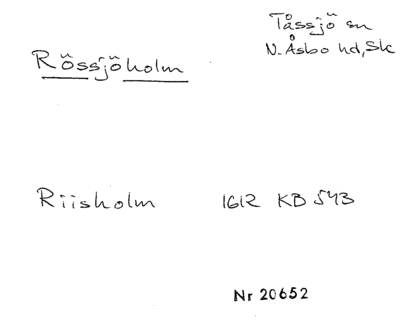 Tåssjö sn
Rössjöholm
N. Åsbo hd, Sk
Riisholm 1612 KB 543
Nr 20652